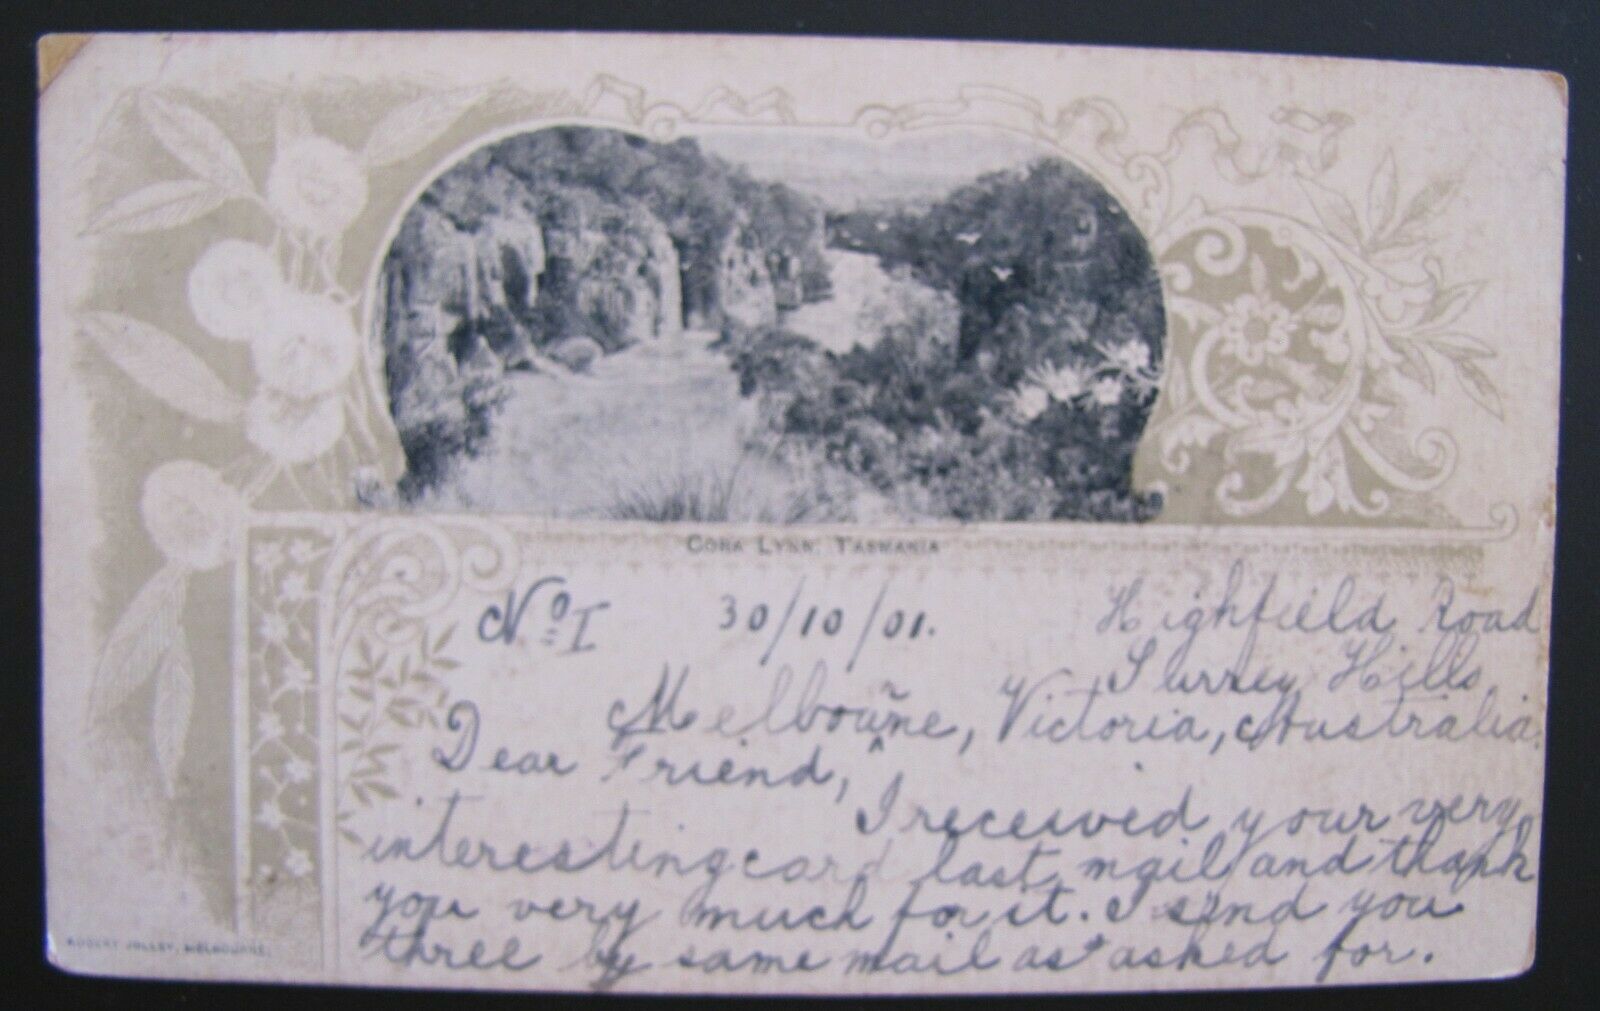 CORA LYNN, TASMANIA
No I 30/10/01. Highfield Road
Surrey Hills,
Melbourne, Victoria, Australia.
Dear Friend,
I received your very
interesting card last mail and thank
you very much for it. I send you
three by same mail as asked for.
ROBERT JOLLEY, MELBOURNE.